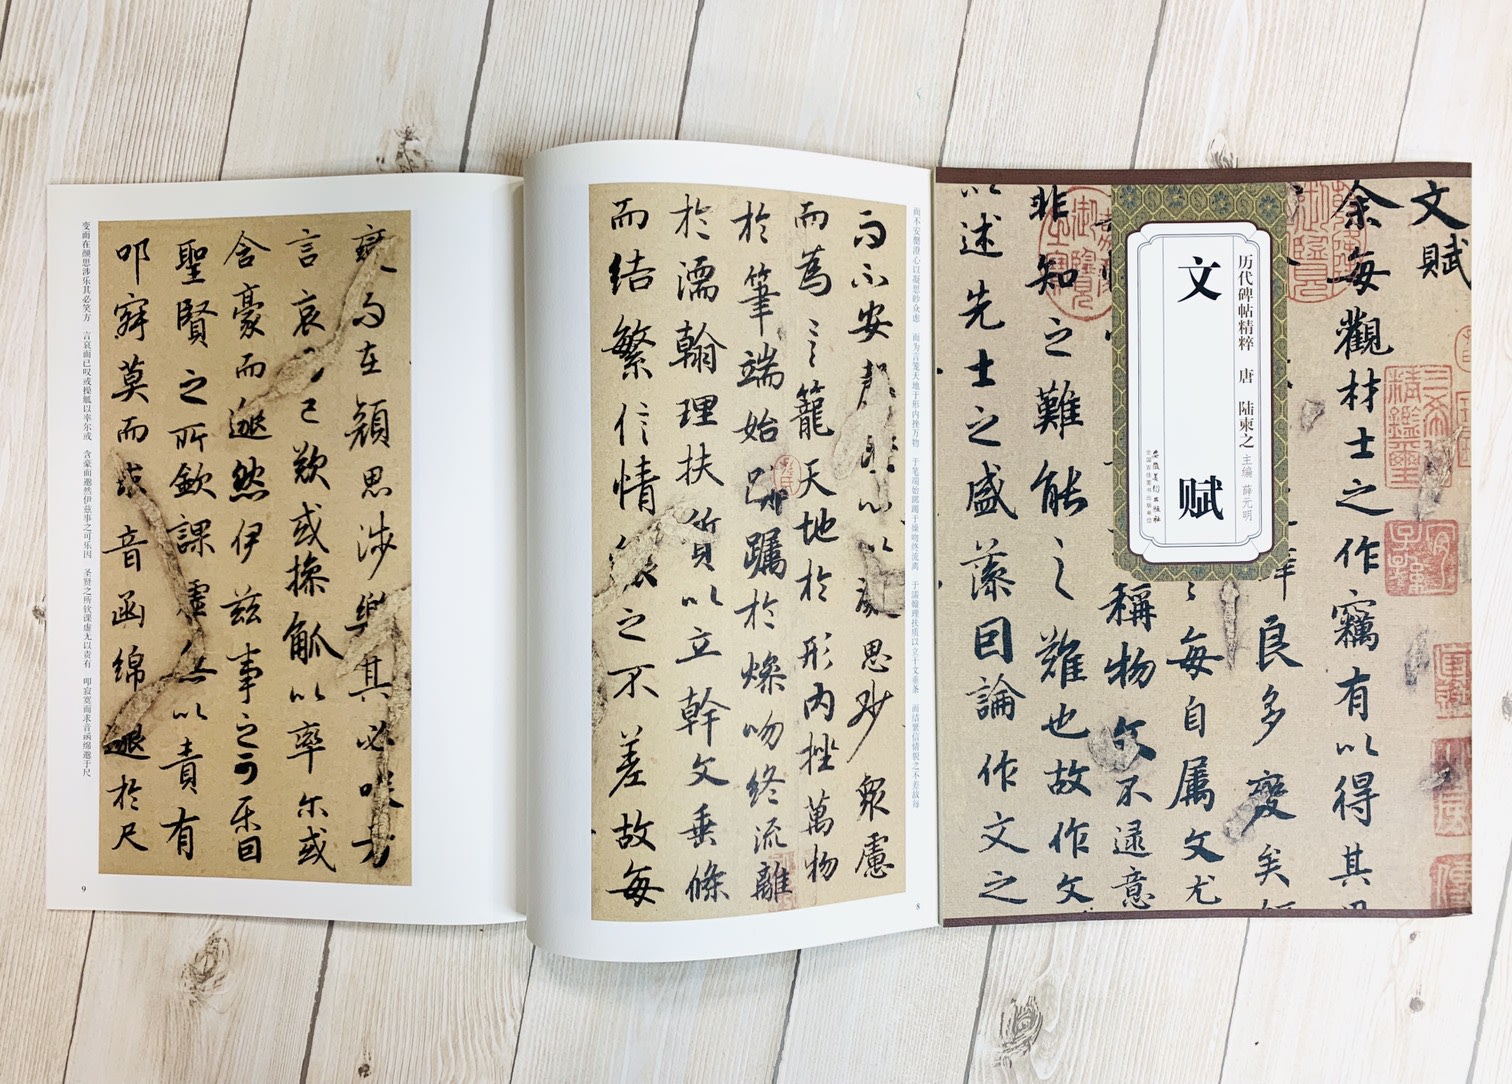 文赋
余每觀材士之作竊有以得其
良多變矣
每自属文尤
稱物文不逮意
非知之難能之難也故作文
以述先士之盛藻因論作文之
历代碑帖精粹 唐 陆柬之
主编 薛元明
文赋
安徽美术出版社
全国百佳图书出版单位
而不安罄澄心以凝思眇众虑 而为言笼天地于形内挫万物 于笔端始踯躅于燥吻终流离 于濡翰理扶质以立干文垂条 而结繁信情貌之不差故每
而不安罄澄心以凝思眇衆慮
而為言籠天地於形内挫萬物
於筆端始躑躅於燥吻終流離
於濡翰理扶質以立幹文垂條
而结繁信情貌之不差故每
8
變而在顔思涉樂其必咲方
言哀而已歎或操觚以率尔或
含豪而邈然伊兹事之可乐因
聖賢之所欽課虚無以責有
叩寂莫而求音函綿邈於尺
变而在颜思涉乐其必笑方 言哀而已叹或操觚以率尔或 含豪而邈然伊兹事之可乐因 圣贤之所钦课虚无以责有 叩寂寞而求音函绵邈于尺
9